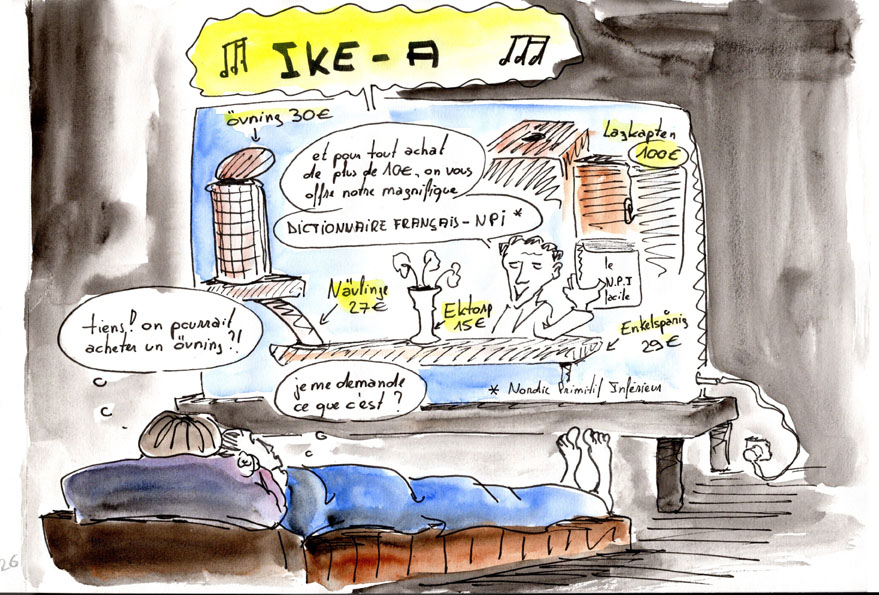 IKE-A
övning 30€
Lagkapten
100€
et pour tout achat
de plus de 10€, on vous
offre notre magnifique
DICTIONNAIRE FRANÇAIS-NPi *
le
N.P.I
facile
Nävlinge
27€
Ektorp
15€
Enkelspårig
29€
tiens! on pourrait
acheter un övning?!
je me demande
ce que c'est ?
* Nordic Primitif Inférieur
26